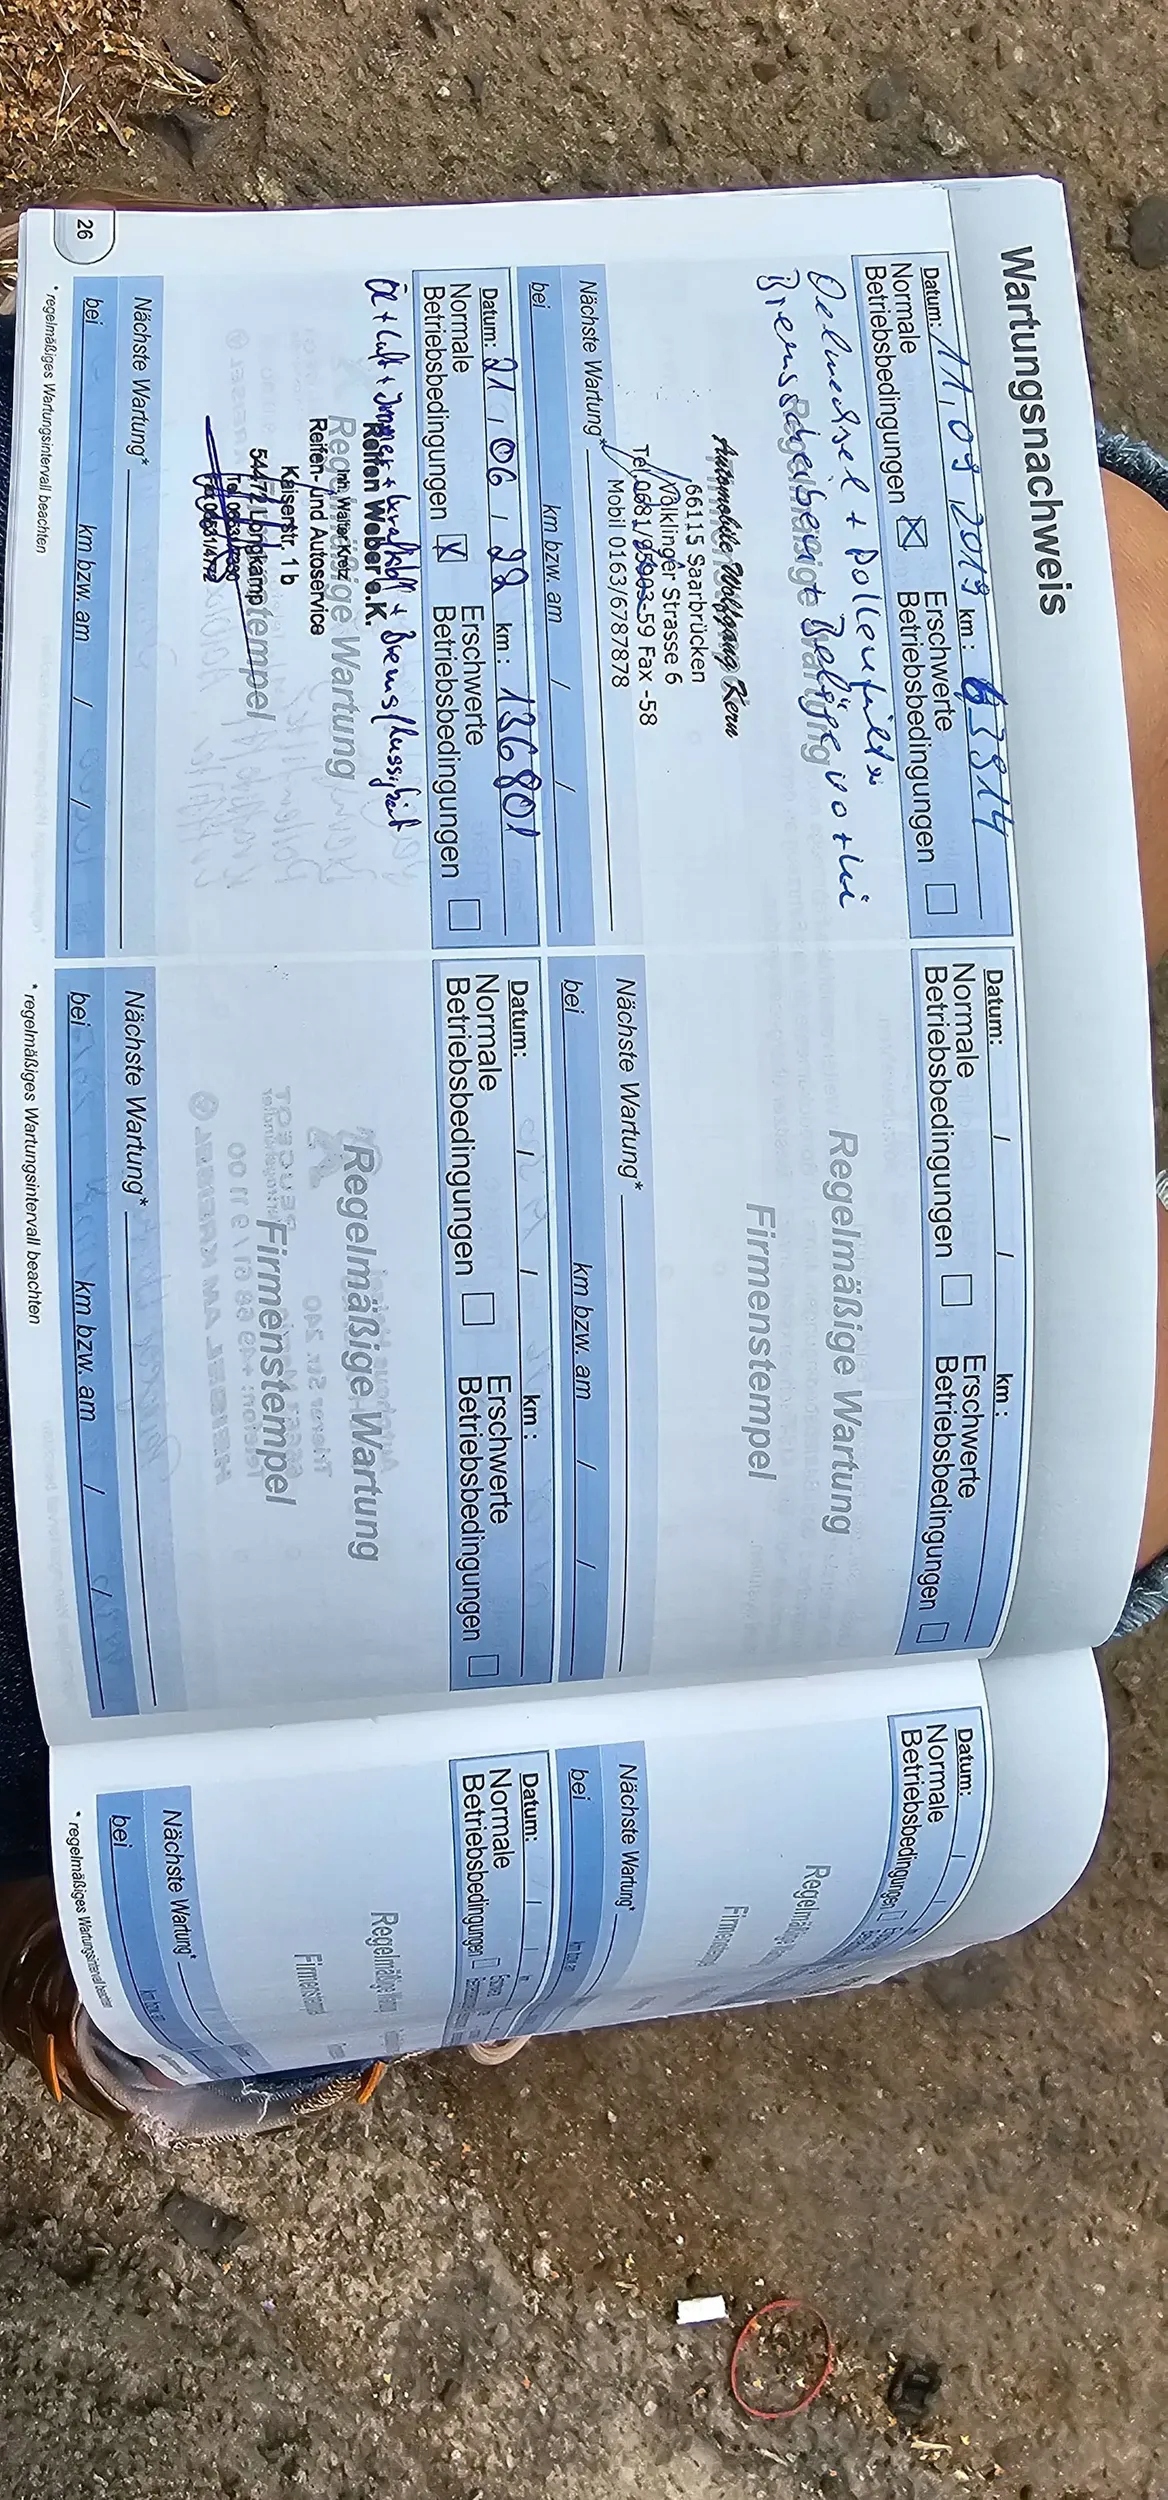 Wartungsnachweis
Datum: 11.09.2019 km: 63914
Normale Betriebsbedingungen ☒ Erschwerte Betriebsbedingungen ☐
Oelwechsel + Pollenfilter
Bremsscheiben Beläge vorne
Regelmäßige Wartung
Automobile Wolfgang Kern
66115 Saarbrücken
Völklinger Strasse 6
Tel. 0681/95903-59 Fax -58
Mobil 0163/6787878
Nächste Wartung*
bei km bzw. am / /
Datum: 21/06/22 km: 136801
Normale Betriebsbedingungen ☒ Erschwerte Betriebsbedingungen ☐
Öl + Luft + Innen + Kraftstoff + Bremsflüssigkeit
Reifen Weber e.K.
Regelmäßige Wartung
Inh. Walter Kretz
Reifen- und Autoservice
Kaiserstr. 1 b
54472 Longkamp
Nächste Wartung*
bei km bzw. am / /
* regelmäßiges Wartungsintervall beachten
26
Datum: / / km:
Normale Betriebsbedingungen ☐ Erschwerte Betriebsbedingungen ☐
Regelmäßige Wartung
Firmenstempel
Nächste Wartung*
bei km bzw. am / /
Datum: / / km:
Normale Betriebsbedingungen ☐ Erschwerte Betriebsbedingungen ☐
Regelmäßige Wartung
Firmenstempel
Nächste Wartung*
bei km bzw. am / /
* regelmäßiges Wartungsintervall beachten
Datum: / /
Normale Betriebsbedingungen ☐
Nächste Wartung*
bei
Datum: / /
Normale Betriebsbedingungen ☐
Nächste Wartung*
bei
* regelmäßiges Wartungsintervall beachten